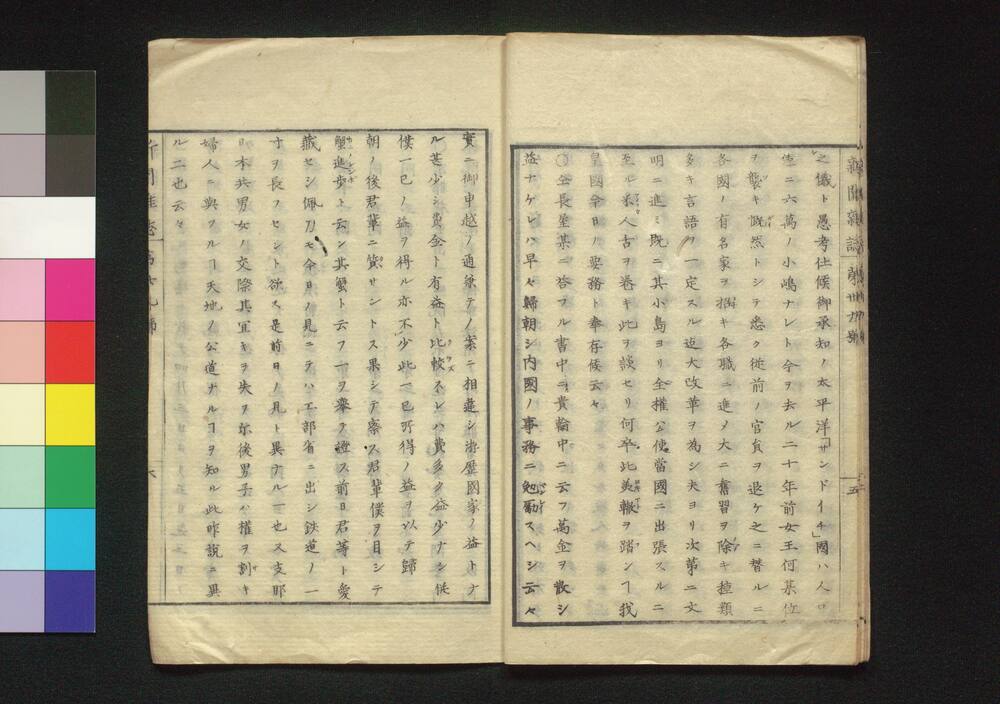 之儀ト愚考仕候御承知ノ太平洋「サンドイチ」國ハ人口
僅ニ六萬ノ小嶋ナレト今ヲ去ル二十年前女王何某位
ヲ襲キ慨然トシテ悉ク従前ノ官員ヲ退ケ之ニ替ルニ
各國ノ有名家ヲ招キ各職ニ進メ大ニ舊習ヲ除キ種類
多キ言語ヲ一定スル迠大改革ヲ為シ夫ヨリ次第ニ文
明ニ進ミ既ニ其小島ヨリ全權公使當國ニ出張スルニ
至ル米人古ヲ巻キ此ヲ談セリ何卒此美轍ヲ踏ンヿ我
皇國今日ノ要務ト奉存候云々
○仝長崟某ニ答フル書中ニ貴輪中ニ云フ萬金ヲ散シ
益ナケレハ早々歸朝シ内國ノ事務ニ勉勵スヘシ云々
實ニ御申越ノ通兼テノ案ニ相違シ游歴國家ノ益トナ
ル甚少シ費金ト有益ト比較スレハ費多ク益少ナシ併
僕一已ノ益ヲ得ル亦不少此一已所得ノ益ヲ以テ歸
朝ノ後君輩ニ貸サントス果シテ察ス君輩僕ヲ目シテ
蟹進歩ト云ン其蟹ト云フ一ヲ舉ケ證ス前日君等ト愛
藏セシ佩刀モ今日ノ見ニテハ工部省ニ出シ鉄道ノ一
寸ヲ長フセント欲ス是前日ノ見ト異ナル一也又支那
日本共男女ノ交際其宜キヲ失ヲ尓後男子ハ權ヲ割キ
婦人ニ與フルヿ天地ノ公道ナルヿヲ知ル此昨説ニ異
ル二也云々